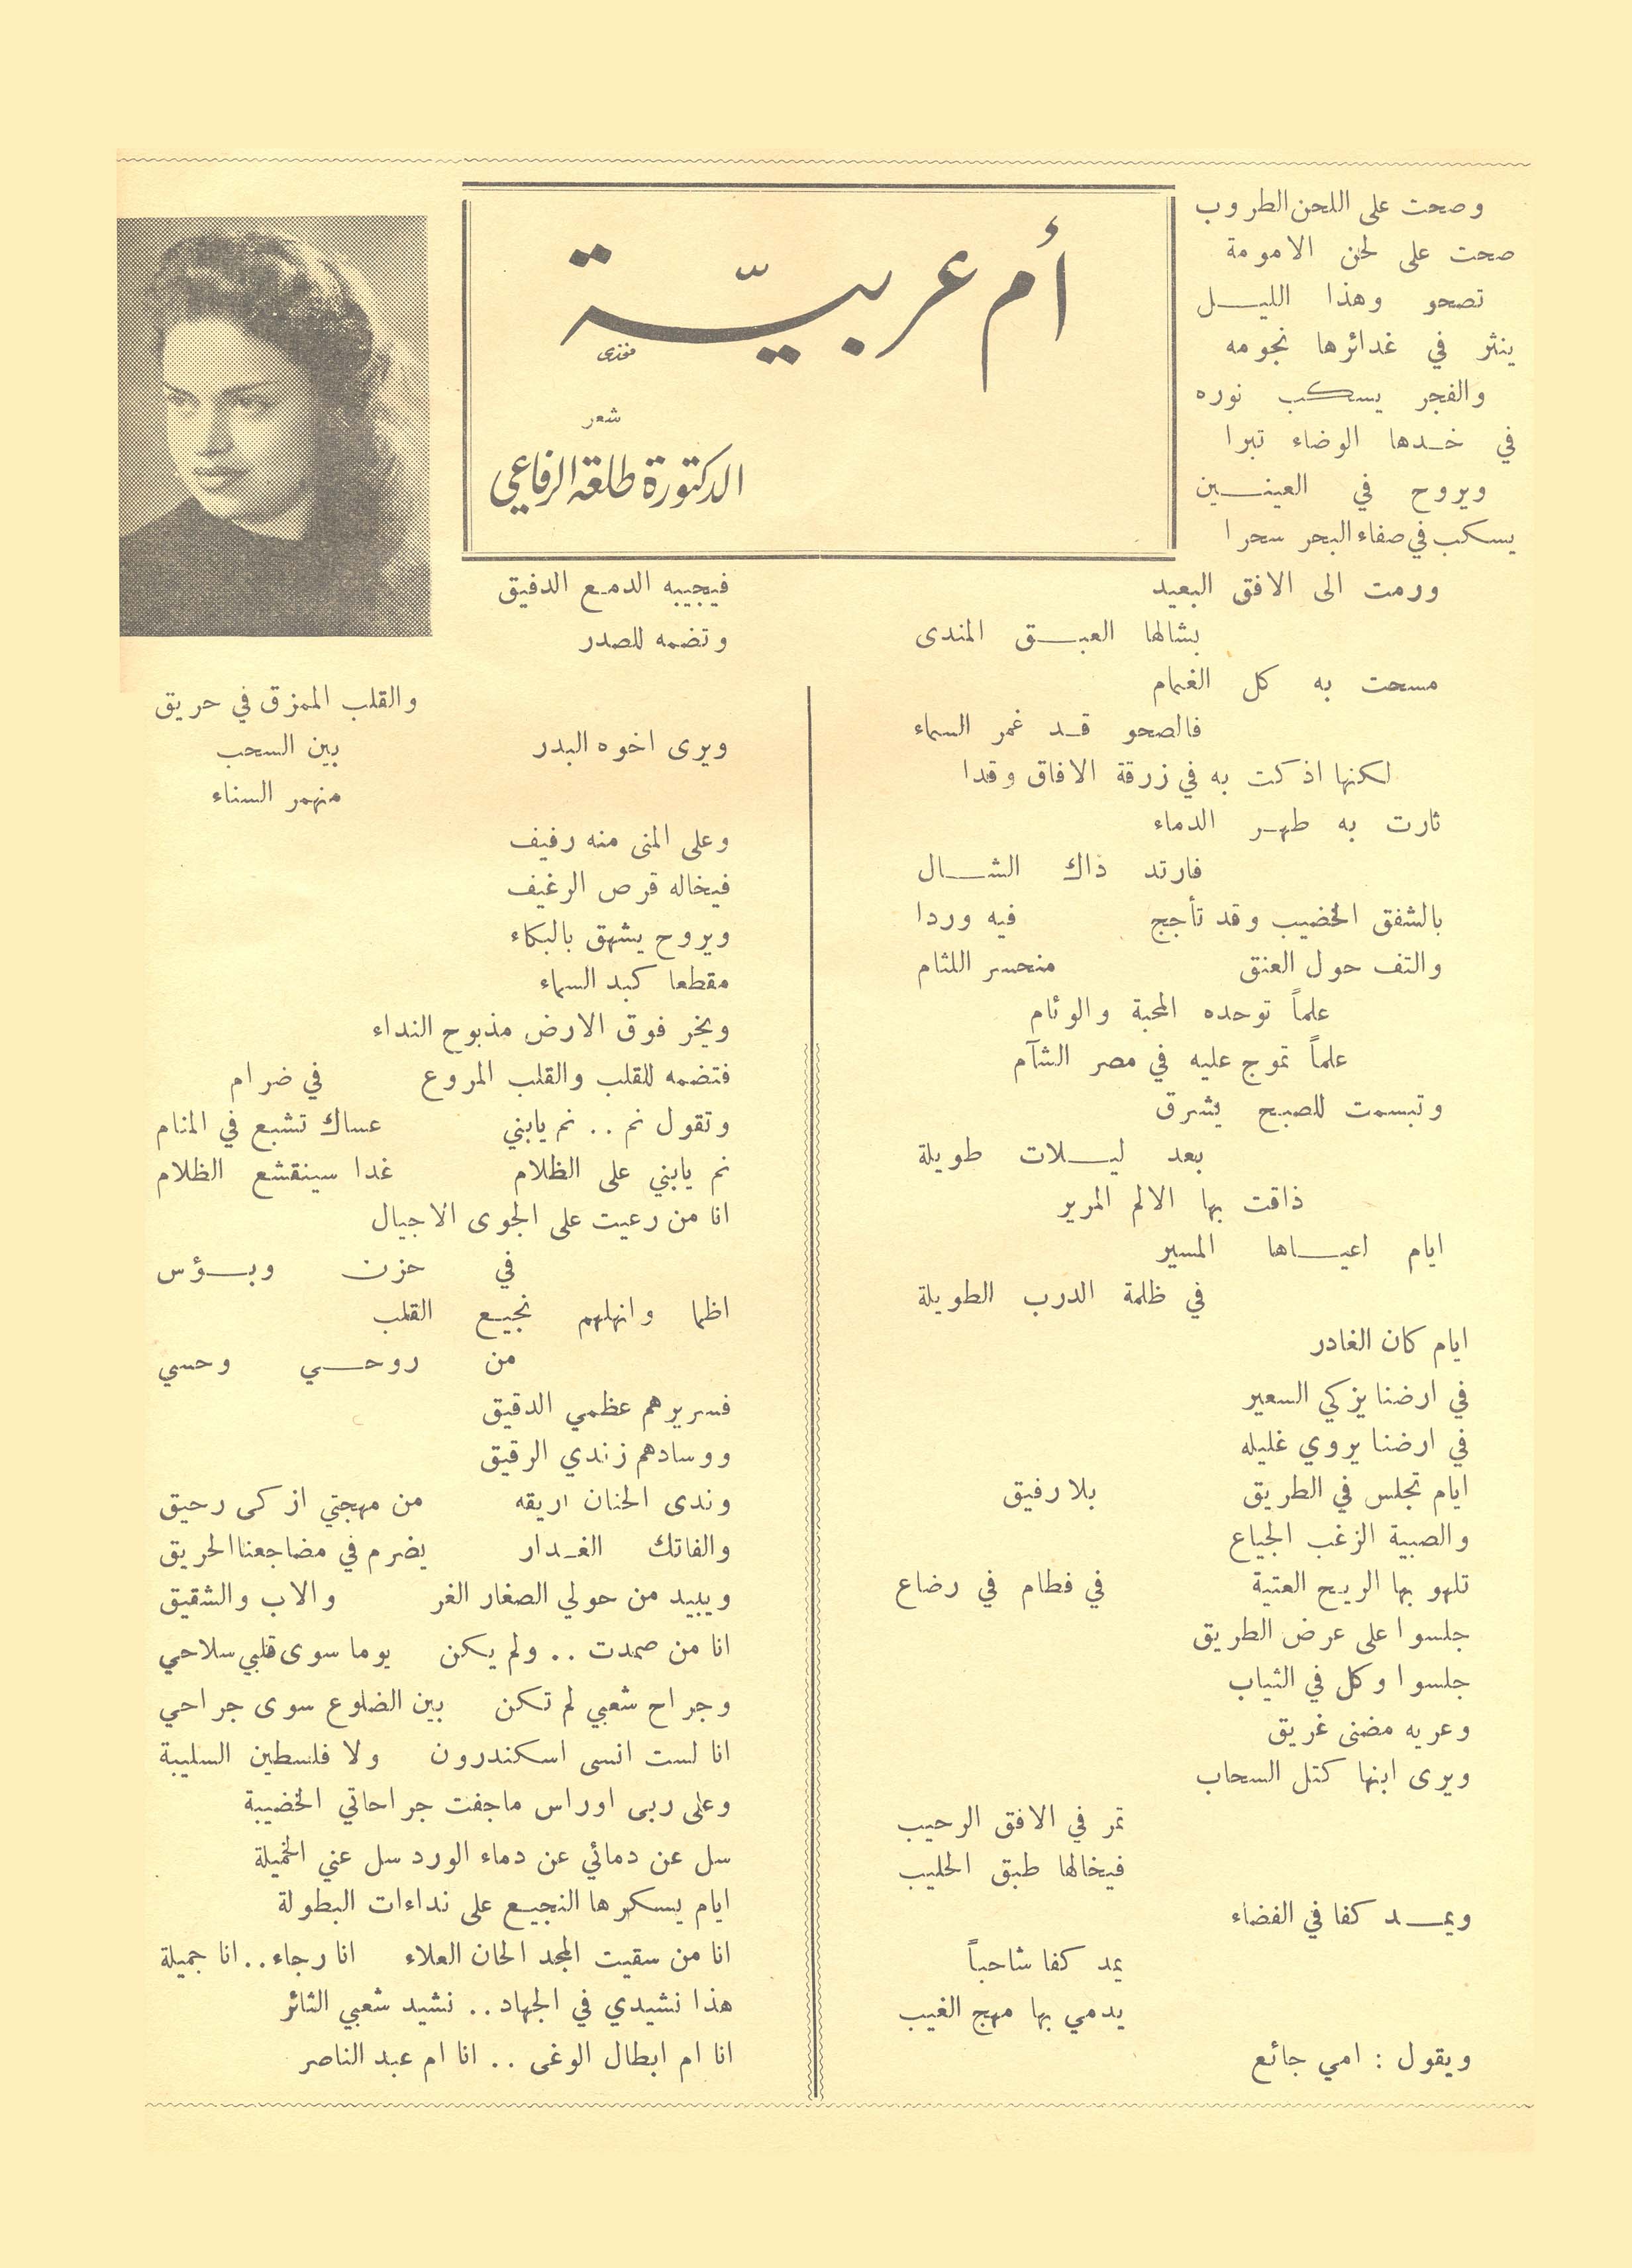 أم عربيّة
شعر
الدكتورة طلعة الرفاعي
وصحت على اللحن الطروب
صحت على لحن الامومة
تصحو وهذا الليل
ينثر في غدائرها نجومه
والفجر يسكب نوره
في خدها الوضاء تبرا
ويروح في العينين
يسكب في صفاء البحر سحرا
ورمت الى الافق البعيد
بشالها العبق المندى
مسحت به كل الغمام
فالصحو قد غمر السماء
لكنها اذكت به في زرقة الافاق وقدا
ثارت به طهر الدماء
فارتد ذاك الشال
بالشفق الخضيب وقد تأجج فيه وردا
والتف حول العنق منحسر اللثام
علماً توحده المحبة والوئام
علماً تموج عليه في مصر الشآم
وتبسمت للصبح يشرق
بعد ليلات طويلة
ذاقت بها الالم المرير
ايام اعياها المسير
في ظلمة الدرب الطويلة
ايام كان الغادر
في ارضنا يزكي السعير
في ارضنا يروي غليله
ايام تجلس في الطريق بلا رفيق
والصبية الزغب الجياع
تلهو بها الريح العتية في فطام في رضاع
جلسوا على عرض الطريق
جلسوا وكل في الثياب
وعريه مضنى غريق
ويرى ابنها كتل السحاب
تمر في الافق الرحيب
فيخالها طبق الحليب
ويمد كفا في الفضاء
يمد كفا شاحباً
يدمي بها مهج الغيب
ويقول : امي جائع
فيجيبه الدمع الدفيق
وتضمه للصدر
والقلب الممزق في حريق
ويرى اخوه البدر بين السحب
منهمر السناء
وعلى المنى منه رفيف
فيخاله قرص الرغيف
ويروح يشهق بالبكاء
مقطعا كبد السماء
ويخر فوق الارض مذبوح النداء
فتضمه للقلب والقلب المروع في ضرام
وتقول نم . . نم يابني عساك تشبع في المنام
نم يابني على الظلام غدا سينقشع الظلام
انا من رعيت على الجوى الاجيال
في حزن وبؤس
اظما وانهلهم نجيع القلب
من روحي وحسي
فسريرهم عظمي الدقيق
ووسادهم زندي الرقيق
وندى الحنان اريقه من مهجتي ازكى رحيق
والفاتك الغدار يضرم في مضاجعنا الحريق
ويبيد من حولي الصغار الغر والاب والشقيق
انا من صمدت . . ولم يكن يوما سوى قلبي سلاحي
وجراح شعبي لم تكن بين الضلوع سوى جراحي
انا لست انسى اسكندرون ولا فلسطين السليبة
وعلى ربى اوراس ماجفت جراحاتي الخضيبة
سل عن دمائي عن دماء الورد سل عني الخميلة
ايام يسكرها النجيع على نداءات البطولة
انا من سقيت المجد الحان العلاء انا رجاء . . انا جميلة
هذا نشيدي في الجهاد . . نشيد شعبي الثائر
انا ام ابطال الوغى . . انا ام عبد الناصر